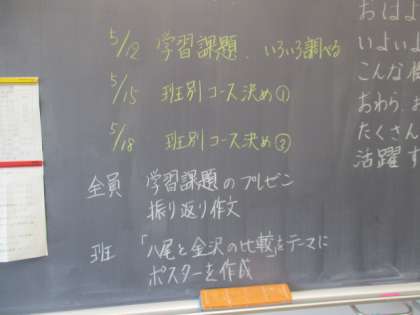 5/12 学習課題、いろいろ調べる
5/15 班別コース決め①
5/18 班別コース決め②
全員 学習課題のプレゼン
振り返り作文
班 「八尾と金沢の比較」をテーマに
ポスターを作成
おはよ
いよいよ
こんな
おわら
たくさん
活躍す